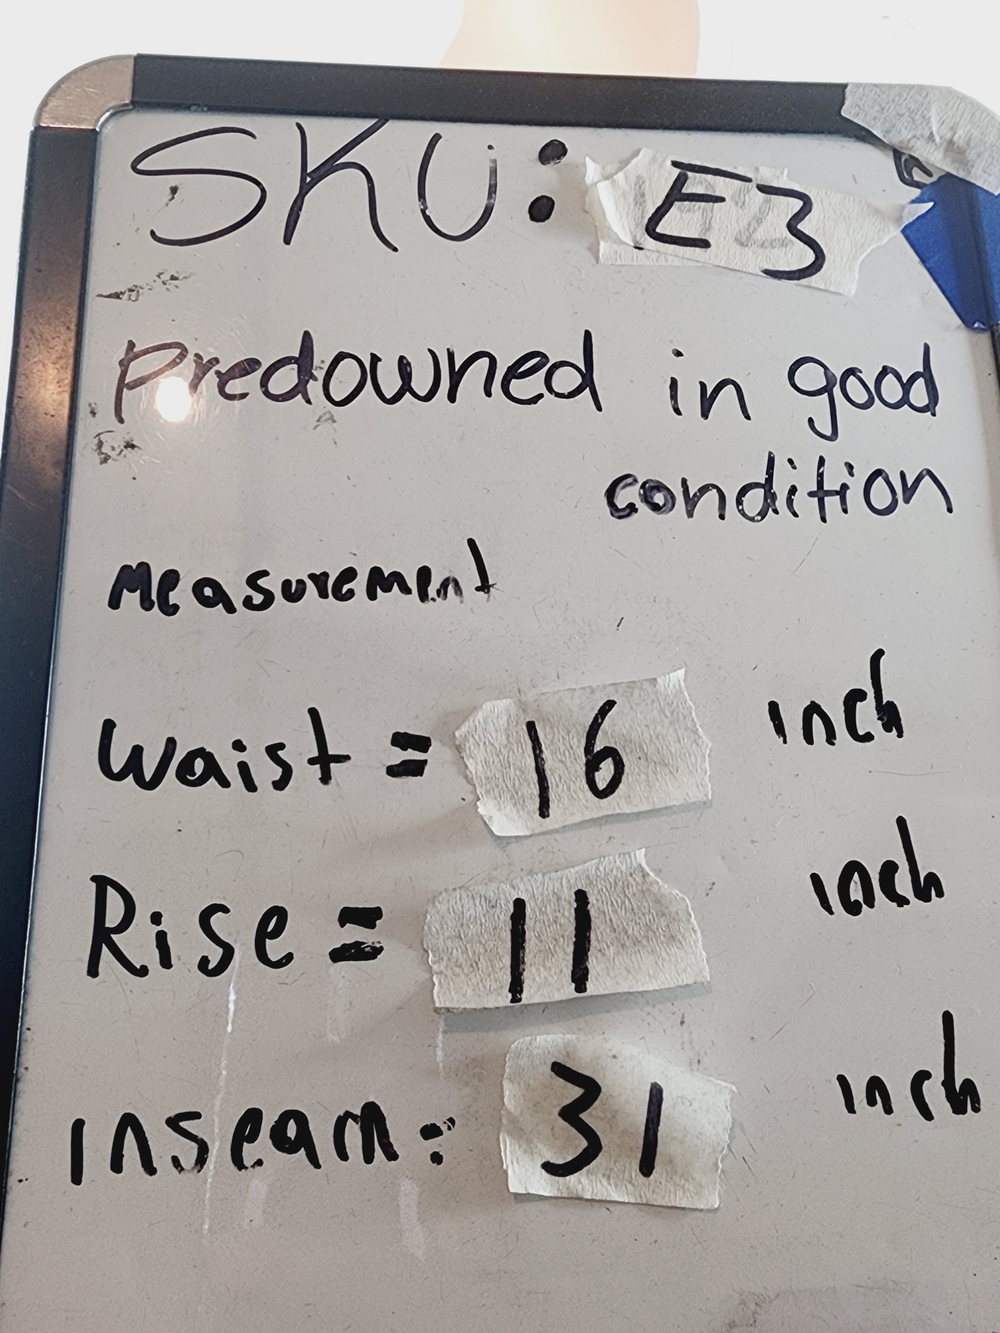 SKU: E3
Predowned in good
condition
Measurement
Waist = 16 inch
Rise = 11 inch
inseam: 31 inch